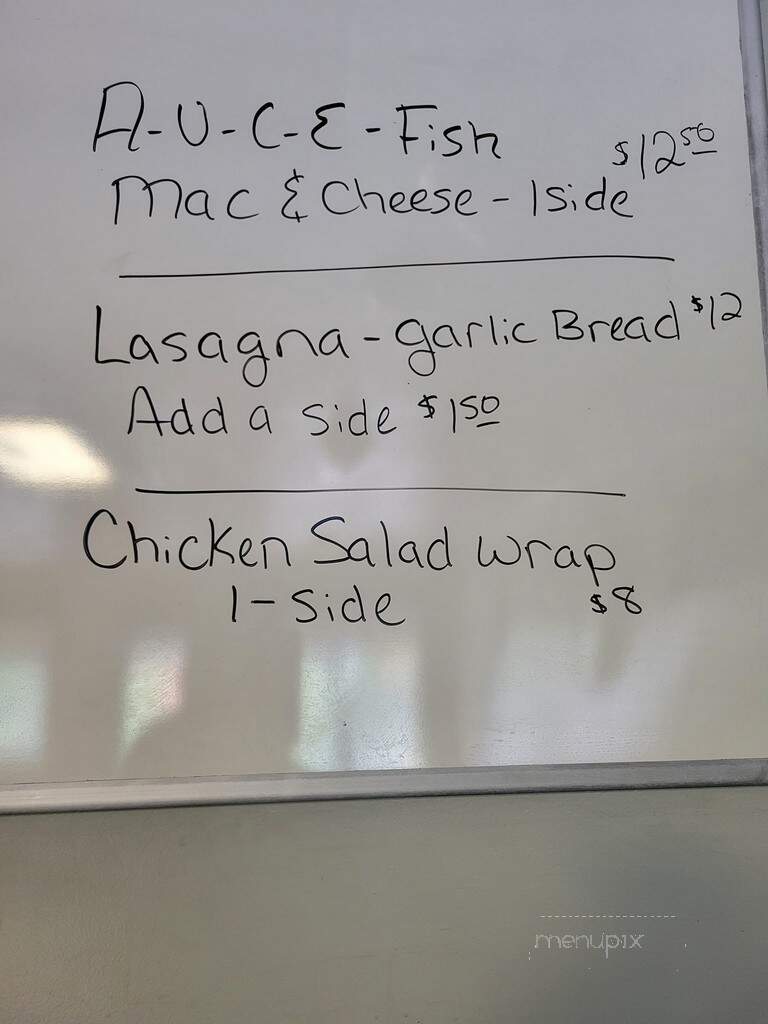 A-U-C-E-Fish
$12 50
Mac & Cheese - 1 side
Lasagna - garlic Bread $12
Add a side $1 50
Chicken Salad wrap
1 - side $8
menupix